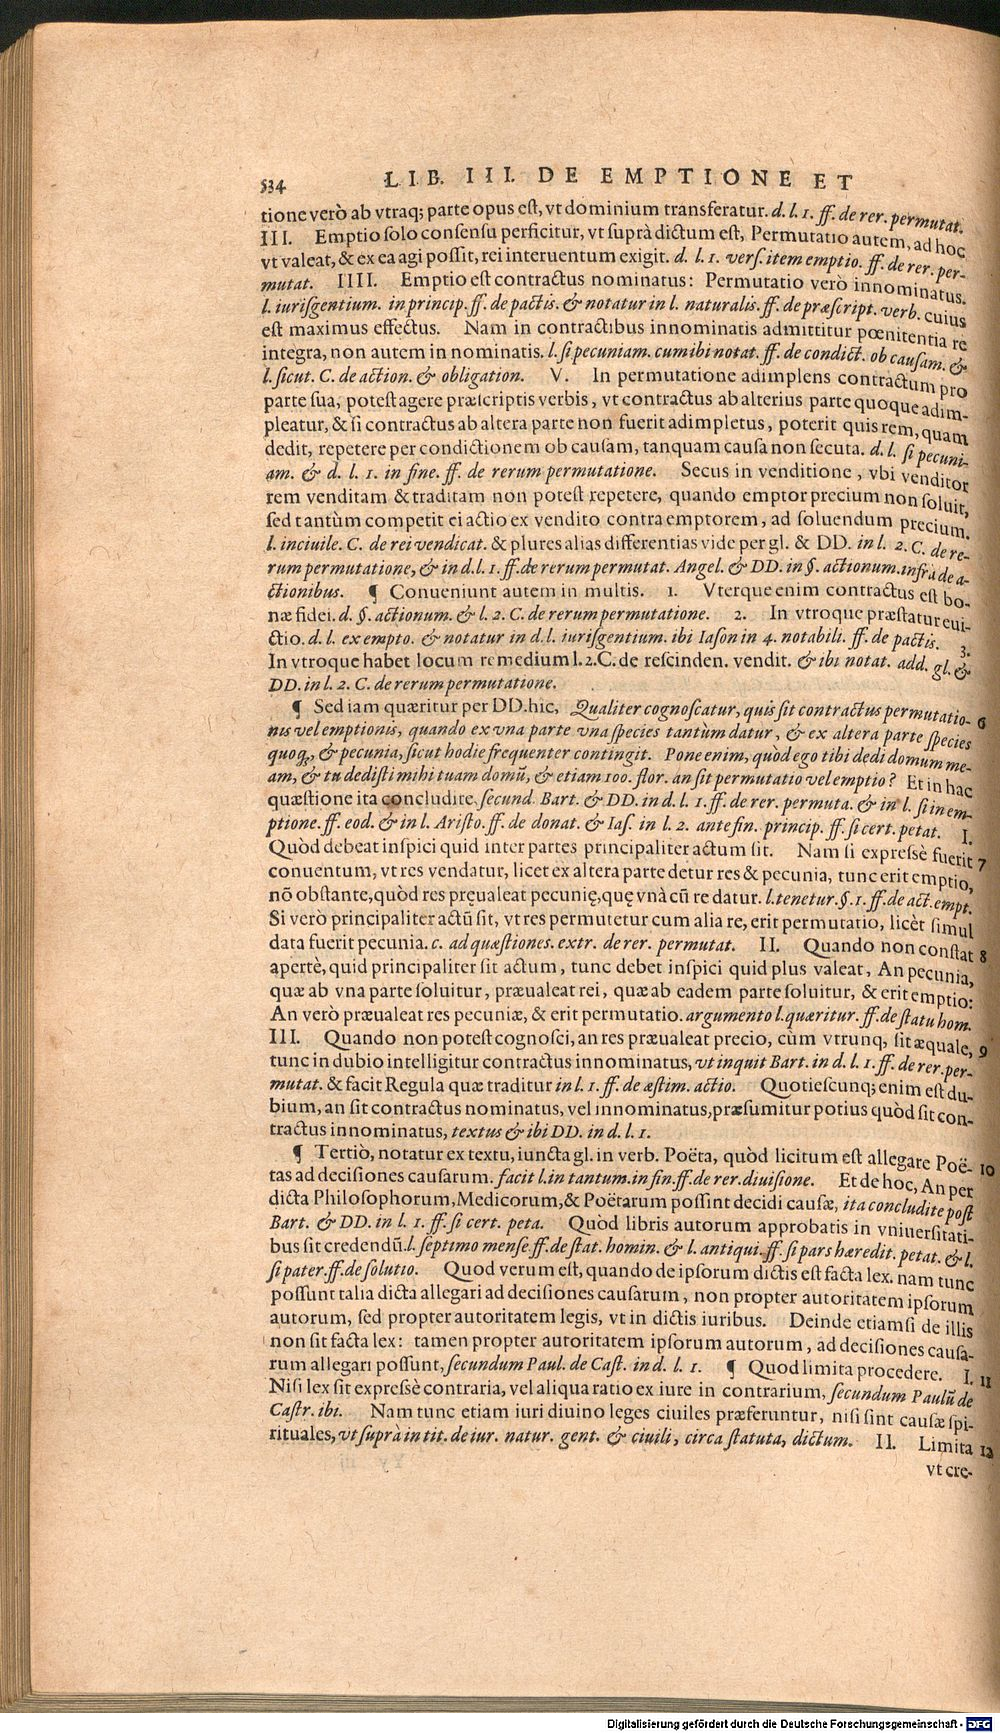 534 LIB. III. DE EMPTIONE ET
tione verò ab vtraq; parte opus est, vt dominium transferatur. d. l. 1. ff. de rer. permutat.
III. Emptio solo consensu perficitur, vt suprà dictum est, Permutatio autem, ad hoc
vt valeat, & ex ea agi possit, rei interuentum exigit. d. l. 1. vers. item emptio. ff. de rer. per-
mutat. IIII. Emptio est contractus nominatus: Permutatio verò innominatus.
l. iurisgentium. in princip. ff. de pactis. & notatur in l. naturalis. ff. de præscript. verb. cuius
est maximus effectus. Nam in contractibus innominatis admittitur pœnitentia re
integra, non autem in nominatis. l. si pecuniam. cum ibi notat. ff. de condict. ob causam. &
l. sicut. C. de action. & obligation. V. In permutatione adimplens contractum pro
parte sua, potest agere præscriptis verbis, vt contractus ab alterius parte quoque adim-
pleatur, & si contractus ab altera parte non fuerit adimpletus, poterit quis rem, quam
dedit, repetere per condictionem ob causam, tanquam causa non secuta. d. l. si pecuni-
am. & d. l. 1. in fine. ff. de rerum permutatione. Secus in venditione, vbi venditor
rem venditam & traditam non potest repetere, quando emptor precium non soluit,
sed tantùm competit ei actio ex vendito contra emptorem, ad soluendum precium.
l. inciuile. C. de rei vendicat. & plures alias differentias vide per gl. & DD. in l. 2. C. de re-
rum permutatione, & in d. l. 1. ff. de rerum permutat. Angel. & DD. in §. actionum. infrà de a-
ctionibus. ¶ Conueniunt autem in multis. 1. Vterque enim contractus est bo-
næ fidei. d. §. actionum. & l. 2. C. de rerum permutatione. 2. In vtroque præstatur eui-
ctio. d. l. ex empto. & notatur in d. l. iurisgentium. ibi Iason in 4. notabili. ff. de pactis. 3.
In vtroque habet locum remedium l. 2. C. de rescinden. vendit. & ibi notat. add. gl. &
DD. in l. 2. C. de rerum permutatione.
¶ Sed iam quæritur per DD. hic, Qualiter cognoscatur, quis sit contractus permutatio- 6
nis vel emptionis, quando ex vna parte vna species tantùm datur, & ex altera parte species
quoq;, & pecunia, sicut hodie frequenter contingit. Pone enim, quòd ego tibi dedi domum me-
am, & tu dedisti mihi tuam domũ, & etiam 100. flor. an sit permutatio vel emptio? Et in hac
quæstione ita concludite, secund. Bart. & DD. in d. l. 1. ff. de rer. permuta. & in l. si in em-
ptione. ff. eod. & in l. Aristo. ff. de donat. & Ias. in l. 2. ante fin. princip. ff. si cert. petat. I.
Quòd debeat inspici quid inter partes principaliter actum sit. Nam si expressè fuerit 7
conuentum, vt res vendatur, licet ex altera parte detur res & pecunia, tunc erit emptio,
nõ obstante, quòd res pręualeat pecunię, quę vnà cũ re datur. l. tenetur. §. 1. ff. de act. empt.
Si verò principaliter actũ sit, vt res permutetur cum alia re, erit permutatio, licèt simul
data fuerit pecunia. c. ad quæstiones. extr. de rer. permutat. II. Quando non constat 8
apertè, quid principaliter sit actum, tunc debet inspici quid plus valeat, An pecunia,
quæ ab vna parte soluitur, præualeat rei, quæ ab eadem parte soluitur, & erit emptio:
An verò præualeat res pecuniæ, & erit permutatio. argumento l. quæritur. ff. de statu hom.
III. Quando non potest cognosci, an res præualeat precio, cùm vtrunq, sit æquale, 9
tunc in dubio intelligitur contractus innominatus, vt inquit Bart. in d. l. 1. ff. de rer. per-
mutat. & facit Regula quæ traditur in l. 1. ff. de æstim. actio. Quotiescunq; enim est du-
bium, an sit contractus nominatus, vel innominatus, præsumitur potius quòd sit con-
tractus innominatus, textus & ibi DD. in d. l. 1.
¶ Tertiò, notatur ex textu, iuncta gl. in verb. Poëta, quòd licitum est allegare Poë- 10
tas ad decisiones causarum. facit l. in tantum. in fin. ff. de rer. diuisione. Et de hoc, An per
dicta Philosophorum, Medicorum, & Poëtarum possint decidi causæ, ita concludite post
Bart. & DD. in l. 1. ff. si cert. peta. Quòd libris autorum approbatis in vniuersitati-
bus sit credendũ. l. septimo mense. ff. de stat. homin. & l. antiqui. ff. si pars hæredit. petat. & l.
si pater. ff. de solutio. Quod verum est, quando de ipsorum dictis est facta lex. nam tunc
possunt talia dicta allegari ad decisiones causarum, non propter autoritatem ipsorum
autorum, sed propter autoritatem legis, vt in dictis iuribus. Deinde etiamsi de illis
non sit facta lex: tamen propter autoritatem ipsorum autorum, ad decisiones causa-
rum allegari possunt, secundum Paul. de Cast. in d. l. 1. ¶ Quod limita procedere. I. 11
Nisi lex sit expressè contraria, vel aliqua ratio ex iure in contrarium, secundum Paulũ de
Castr. ibi. Nam tunc etiam iuri diuino leges ciuiles præferuntur, nisi sint causæ spi-
rituales, vt suprà in tit. de iur. natur. gent. & ciuili, circa statuta, dictum. II. Limita 12
vt cre-
Digitalisierung gefördert durch die Deutsche Forschungsgemeinschaft - DFG